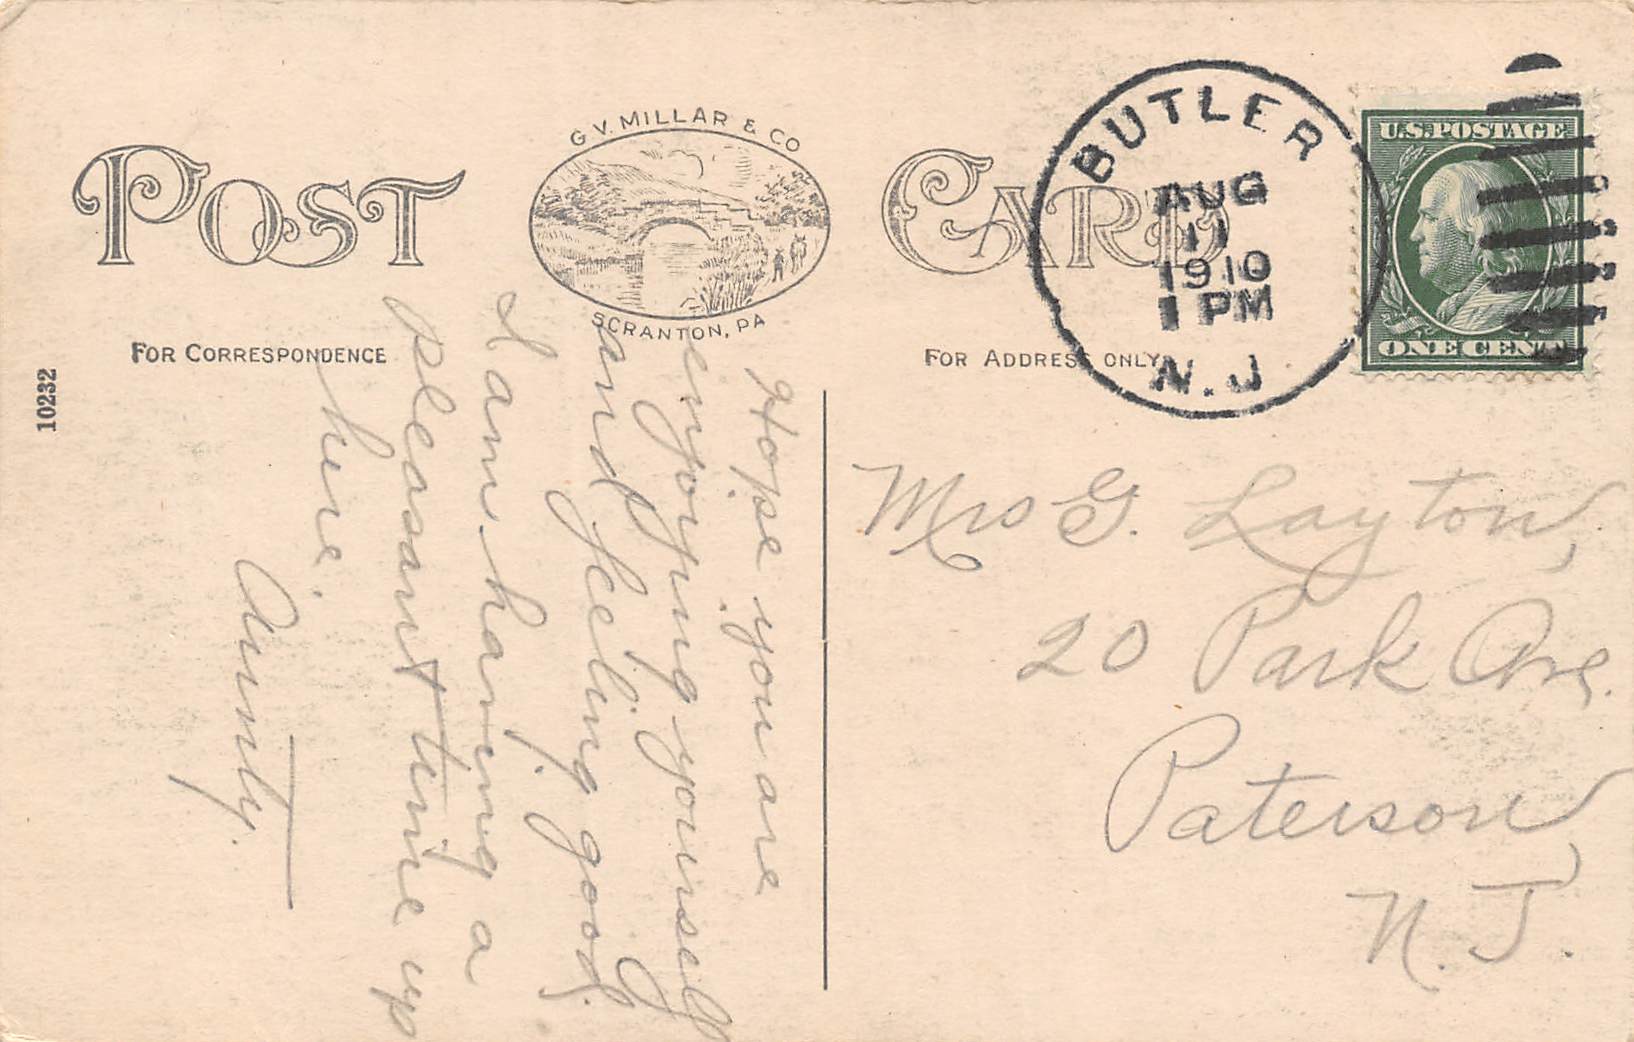 POST CARD
G. V. MILLAR & CO
SCRANTON, PA
FOR CORRESPONDENCE
FOR ADDRESS ONLY
10232
BUTLER
AUG
11
1910
1 PM
N.J
U.S. POSTAGE
ONE CENT
Hope you are
enjoying yourself
and feeling good.
I am having a
pleasant time up
here.
Aunty.
Mrs G. Layton,
20 Park Ave.
Paterson,
N. J.